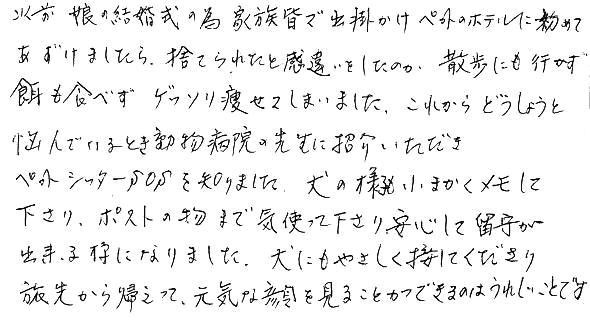 以前 娘の結婚式の為 家族皆で出掛かけ ペットのホテルに初めて
あずけましたら、捨てられたと感違いをしたのか、散歩にも行かず
餌も食べず ゲッソリ痩せてしまいました。これからどうしょうと
悩んでいるとき動物病院の先生に招介いただき
ペットシッターSOSを知りました。犬の様子小まかくメモして
下さり、ポストの物まで気使って下さり安心して留守が
出来る様になりました。犬にもやさしく接してくださり
旅先から帰えって、元気な顔を見ることができるのはうれしいことです